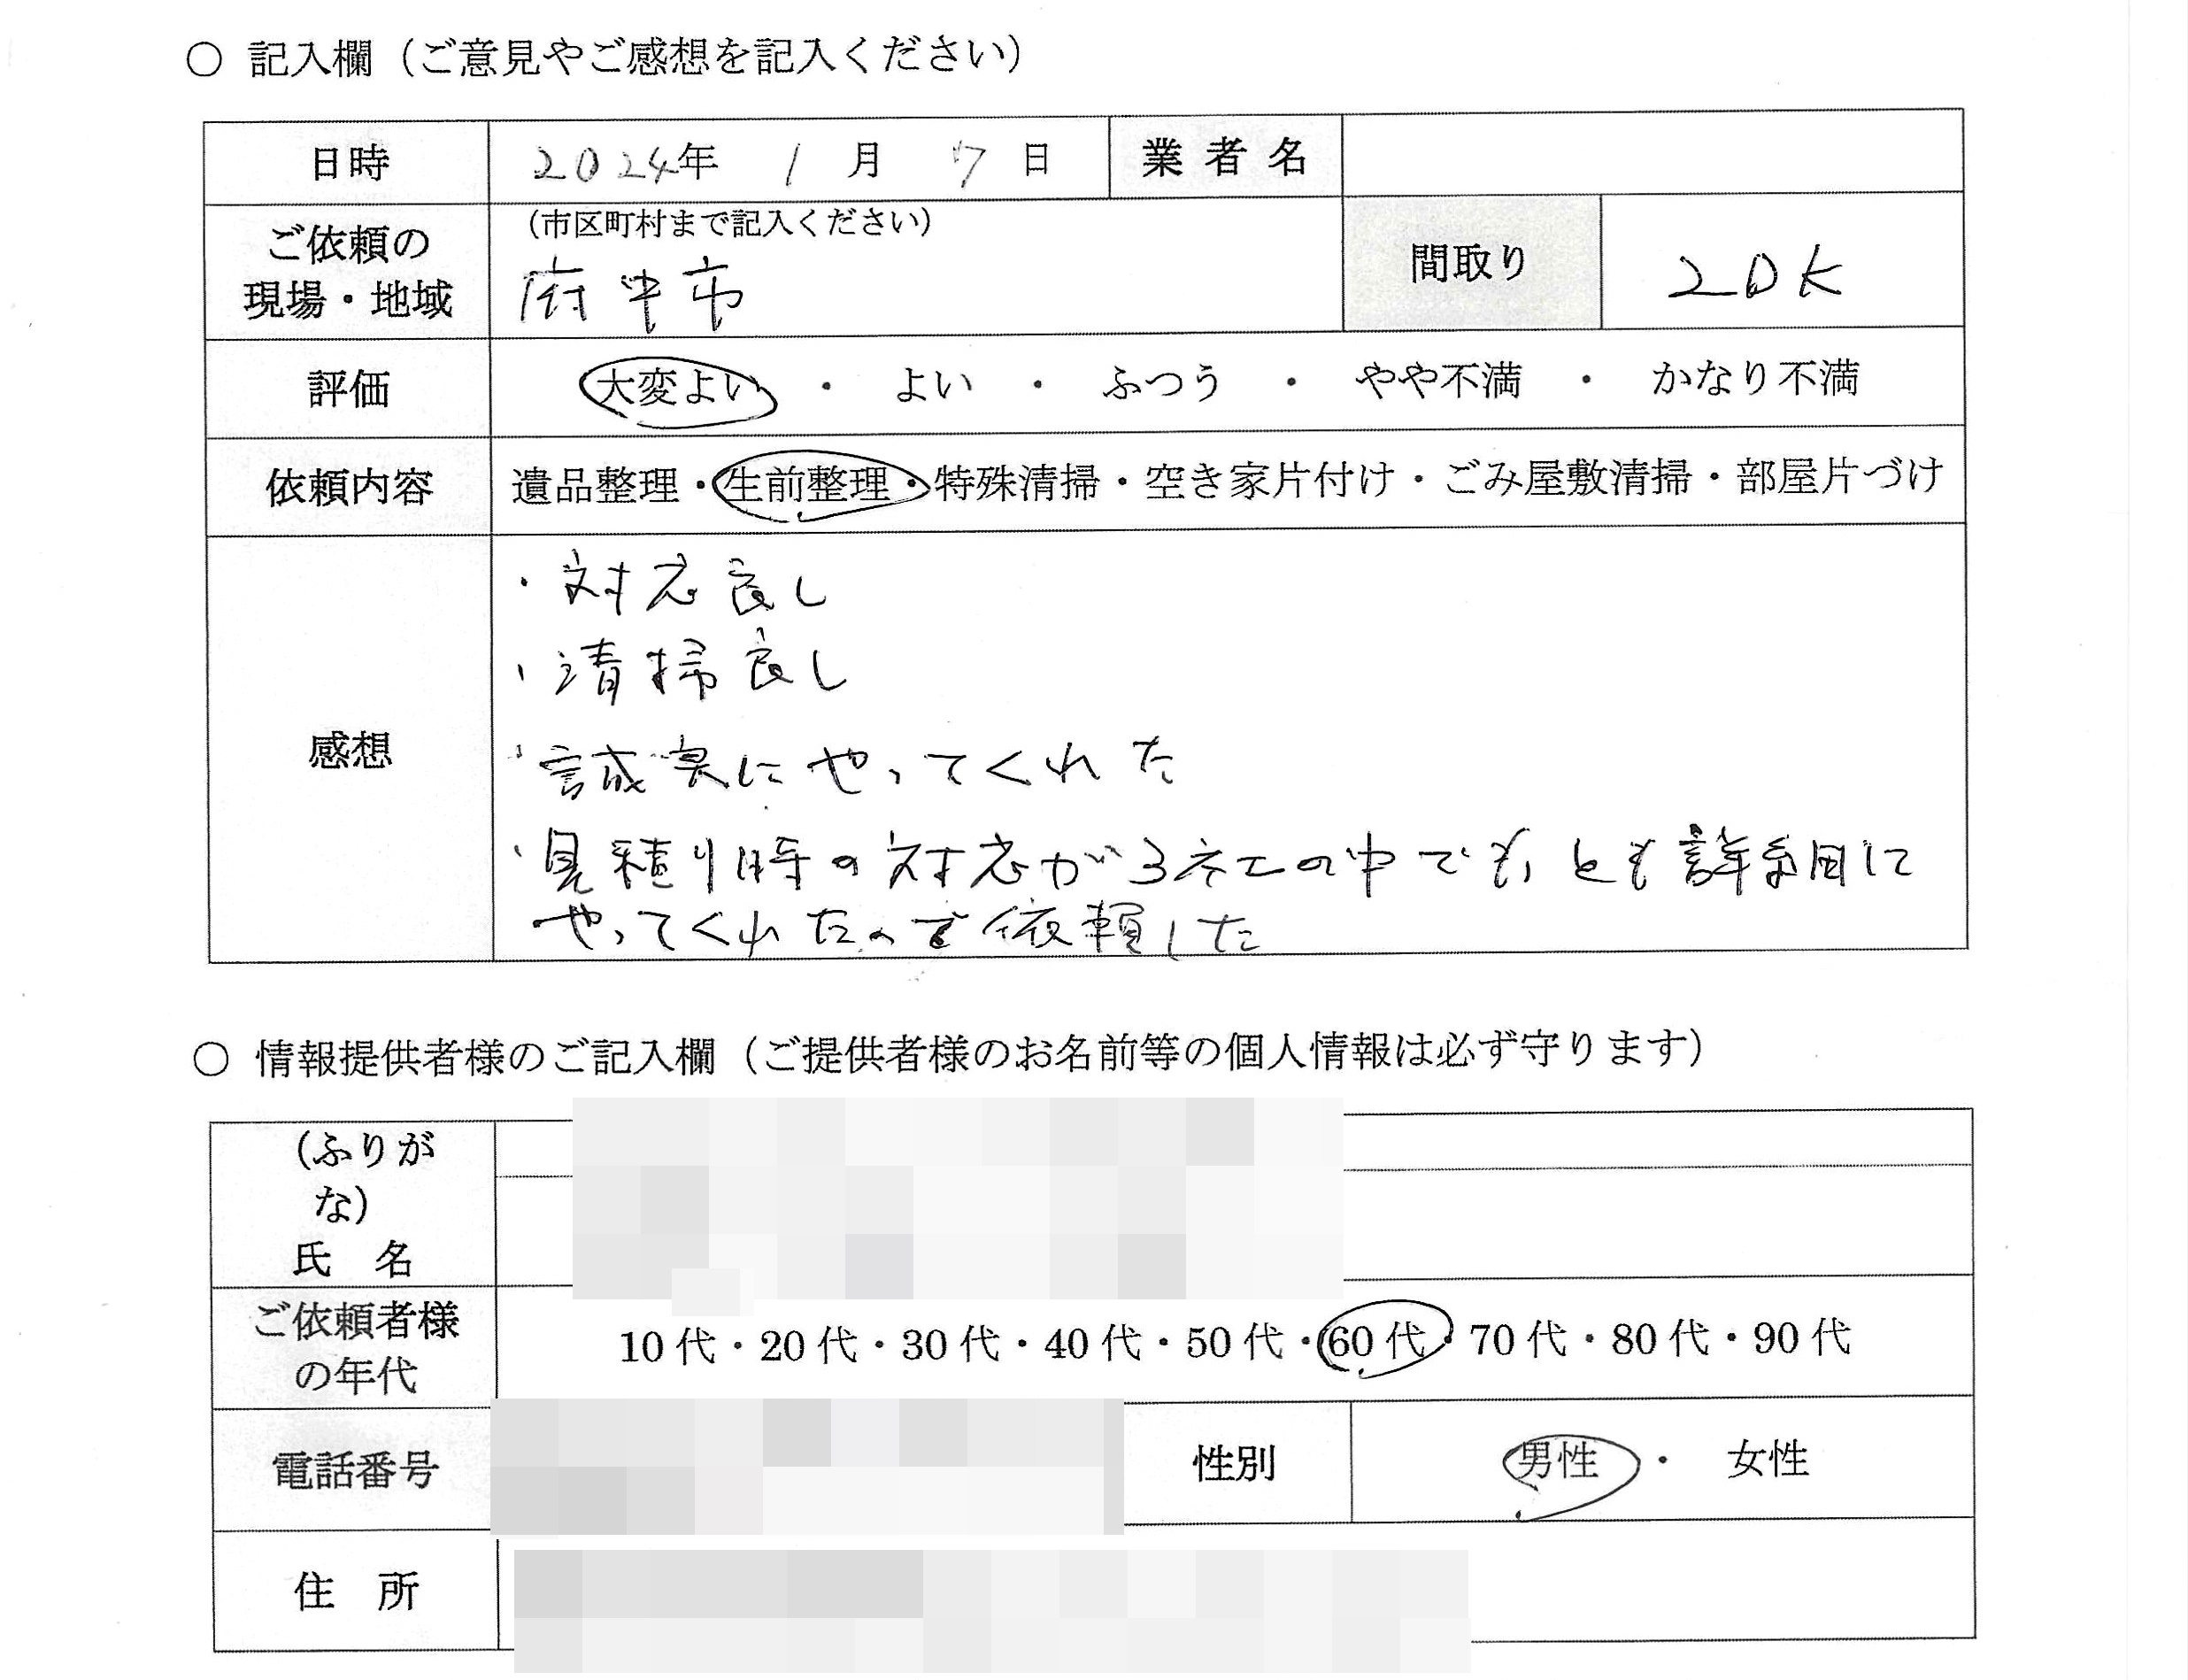 ○ 記入欄（ご意見やご感想を記入ください）
日時 2024年 1月 7日 業者名
ご依頼の現場・地域 （市区町村まで記入ください） 間取り 2DK
府中市
評価 大変よい ・ よい ・ ふつう ・ やや不満 ・ かなり不満
依頼内容 遺品整理・生前整理・特殊清掃・空き家片付け・ごみ屋敷清掃・部屋片づけ
感想
・対応良し
・清掃良し
・誠実にやってくれた
・見積り時の対応が3社の中でもっとも詳細に
やってくれたので依頼した
○ 情報提供者様のご記入欄（ご提供者様のお名前等の個人情報は必ず守ります）
（ふりが
な）
氏 名
ご依頼者様
の年代 10代・20代・30代・40代・50代・60代・70代・80代・90代
電話番号 性別 男性 ・ 女性
住 所